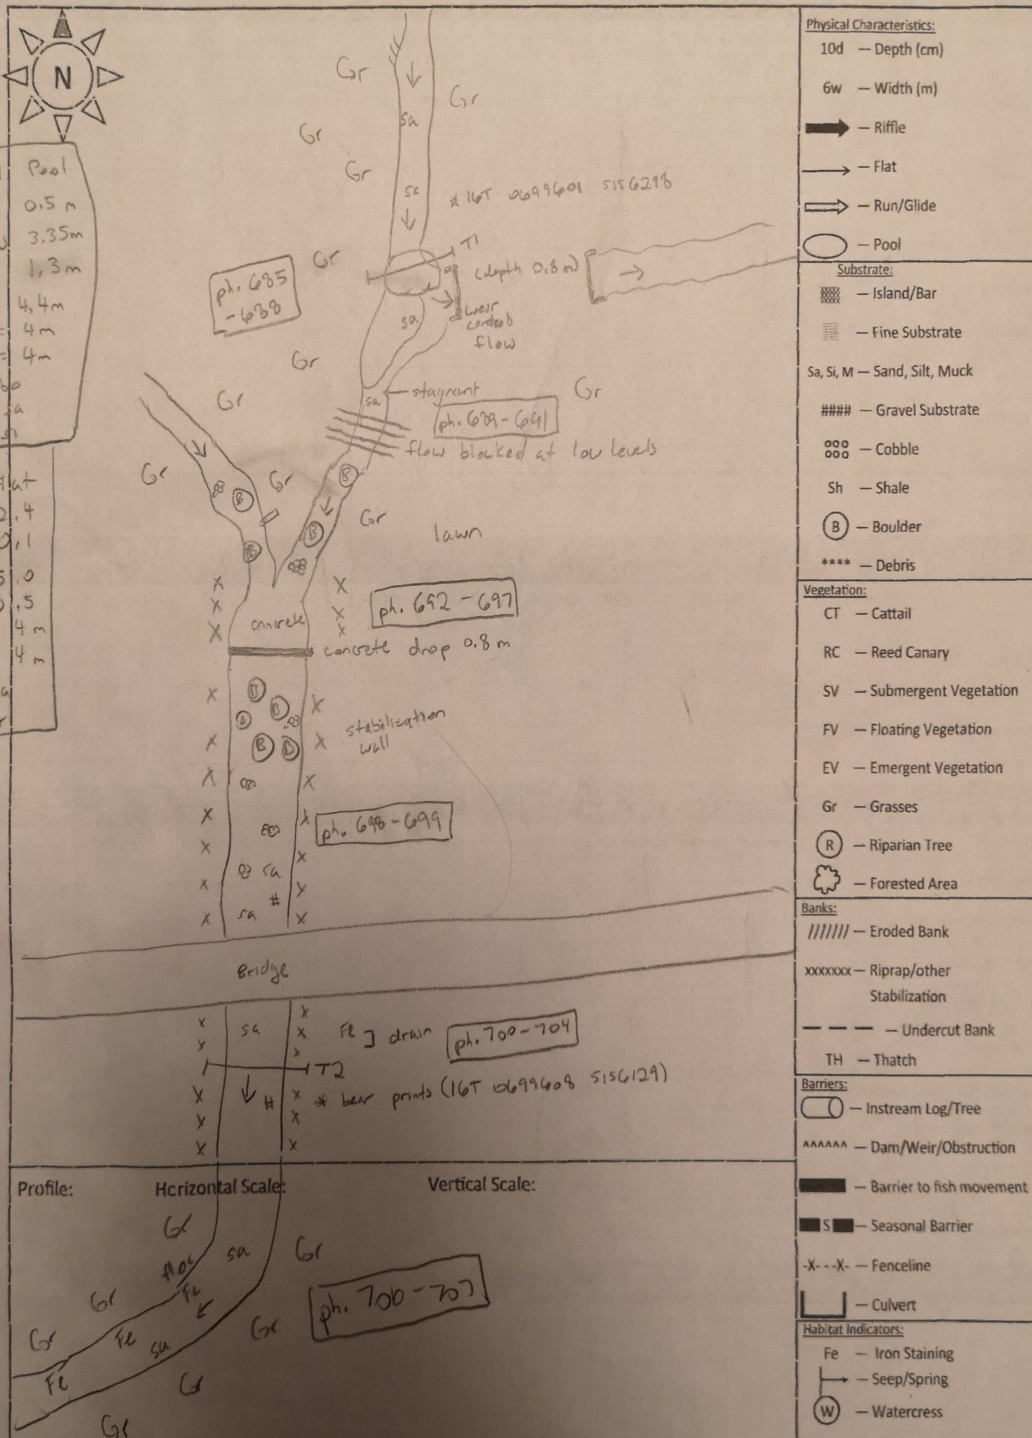 N
Pool
0.5 m
3.35m
1.3m
4.4m
4m
= 4m
sa
at
.4
0.1
.0
.5
4 m
4 m
Gr
Gr
sa
Gr
Gr
sa
* 16T 0699601 5156298
Gr
T1
(depth 0.8m)
ph. 685
-688
sa
weir
controls
flow
Gr
Gr
stagnant
Gr
sa
ph. 689-691
flow blocked at low levels
Gr
Gr
B
B
Gr
B
B
lawn
x
x
x
x
ph. 692-697
x
x
concrete
concrete drop 0.8 m
x
B
B
x
B
stabilization
wall
x
B
B
x
x
x
x
x
ph. 698-699
x
x
sa
x
x
#
x
sa
x
Bridge
x
x
sa
x
Fe ] drain
ph. 700-704
x
x
T2
x
#
x
* bear prints (16T 0699608 5156129)
x
x
x
x
Profile:
Horizontal Scale:
Vertical Scale:
Gr
sa
Gr
floc
Fe
Gr
ph. 700-707
Gr
Fe
Gr
sa
Fe
Gr
Gr
Physical Characteristics:
10d — Depth (cm)
6w — Width (m)
— Riffle
— Flat
— Run/Glide
— Pool
Substrate:
— Island/Bar
— Fine Substrate
Sa, Si, M — Sand, Silt, Muck
#### — Gravel Substrate
— Cobble
Sh — Shale
B — Boulder
**** — Debris
Vegetation:
CT — Cattail
RC — Reed Canary
SV — Submergent Vegetation
FV — Floating Vegetation
EV — Emergent Vegetation
Gr — Grasses
R — Riparian Tree
— Forested Area
Banks:
/////// — Eroded Bank
xxxxxxx — Riprap/other
Stabilization
— Undercut Bank
TH — Thatch
Barriers:
— Instream Log/Tree
^^^^^^ — Dam/Weir/Obstruction
— Barrier to fish movement
S — Seasonal Barrier
-X---X- — Fenceline
— Culvert
Habitat Indicators:
Fe — Iron Staining
— Seep/Spring
W — Watercress